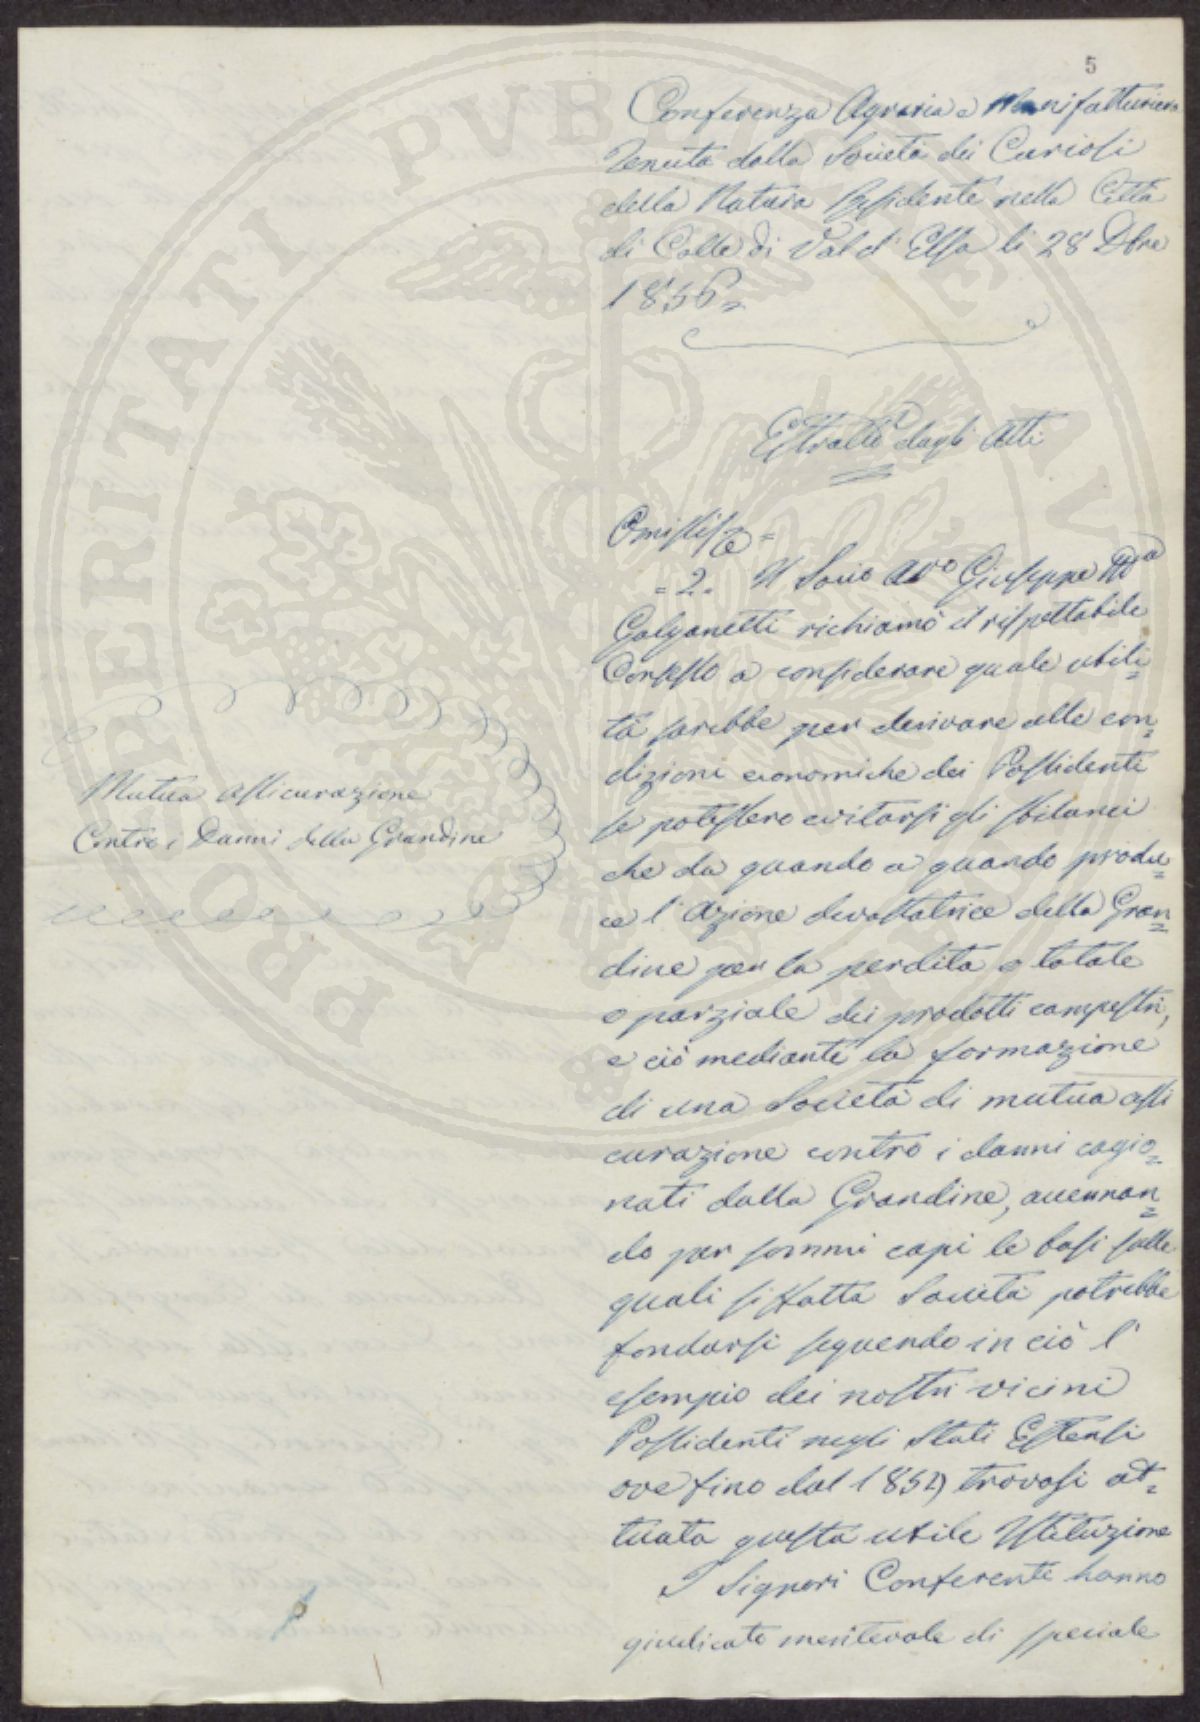 5
Conferenza Agraria e Manifatturiera
Tenuta dalla Società dei Curiosi
della Natura Residente nella Città
di Colle di Val d' Elsa li 28 Dbre
1856=
Estratto dagli Atti
Omissis &=
=2. Il Socio Avo Giuseppe Ma
Galganetti richiamò il rispettabile
Consesso a considerare quale utili=
tà sarebbe per derivare alle con=
dizioni economiche dei Possidenti
se potessero evitarsi gli sbilanci
che da quando a quando produ=
ce l' Azione devastatrice della Gran=
dine per la perdita o totale
o parziale dei prodotti campestri,
e ciò mediante la formazione
di una Società di mutua assi
curazione contro i danni cagio=
nati dalla Grandine, accennan=
do per sommi capi le basi sulle
quali siffatta Società potrebbe
fondarsi seguendo in ciò l'
esempio dei nostri vicini
Possidenti negli Stati Estensi
ove fino dal trovasi at=
tuata questa utile Istituzione
I Signori Conferenti hanno
giudicato meritevole di speciale
Mutua assicurazione
Contro i Danni della Grandine
PROSPERITATI PVBLICAE AVGENDAE